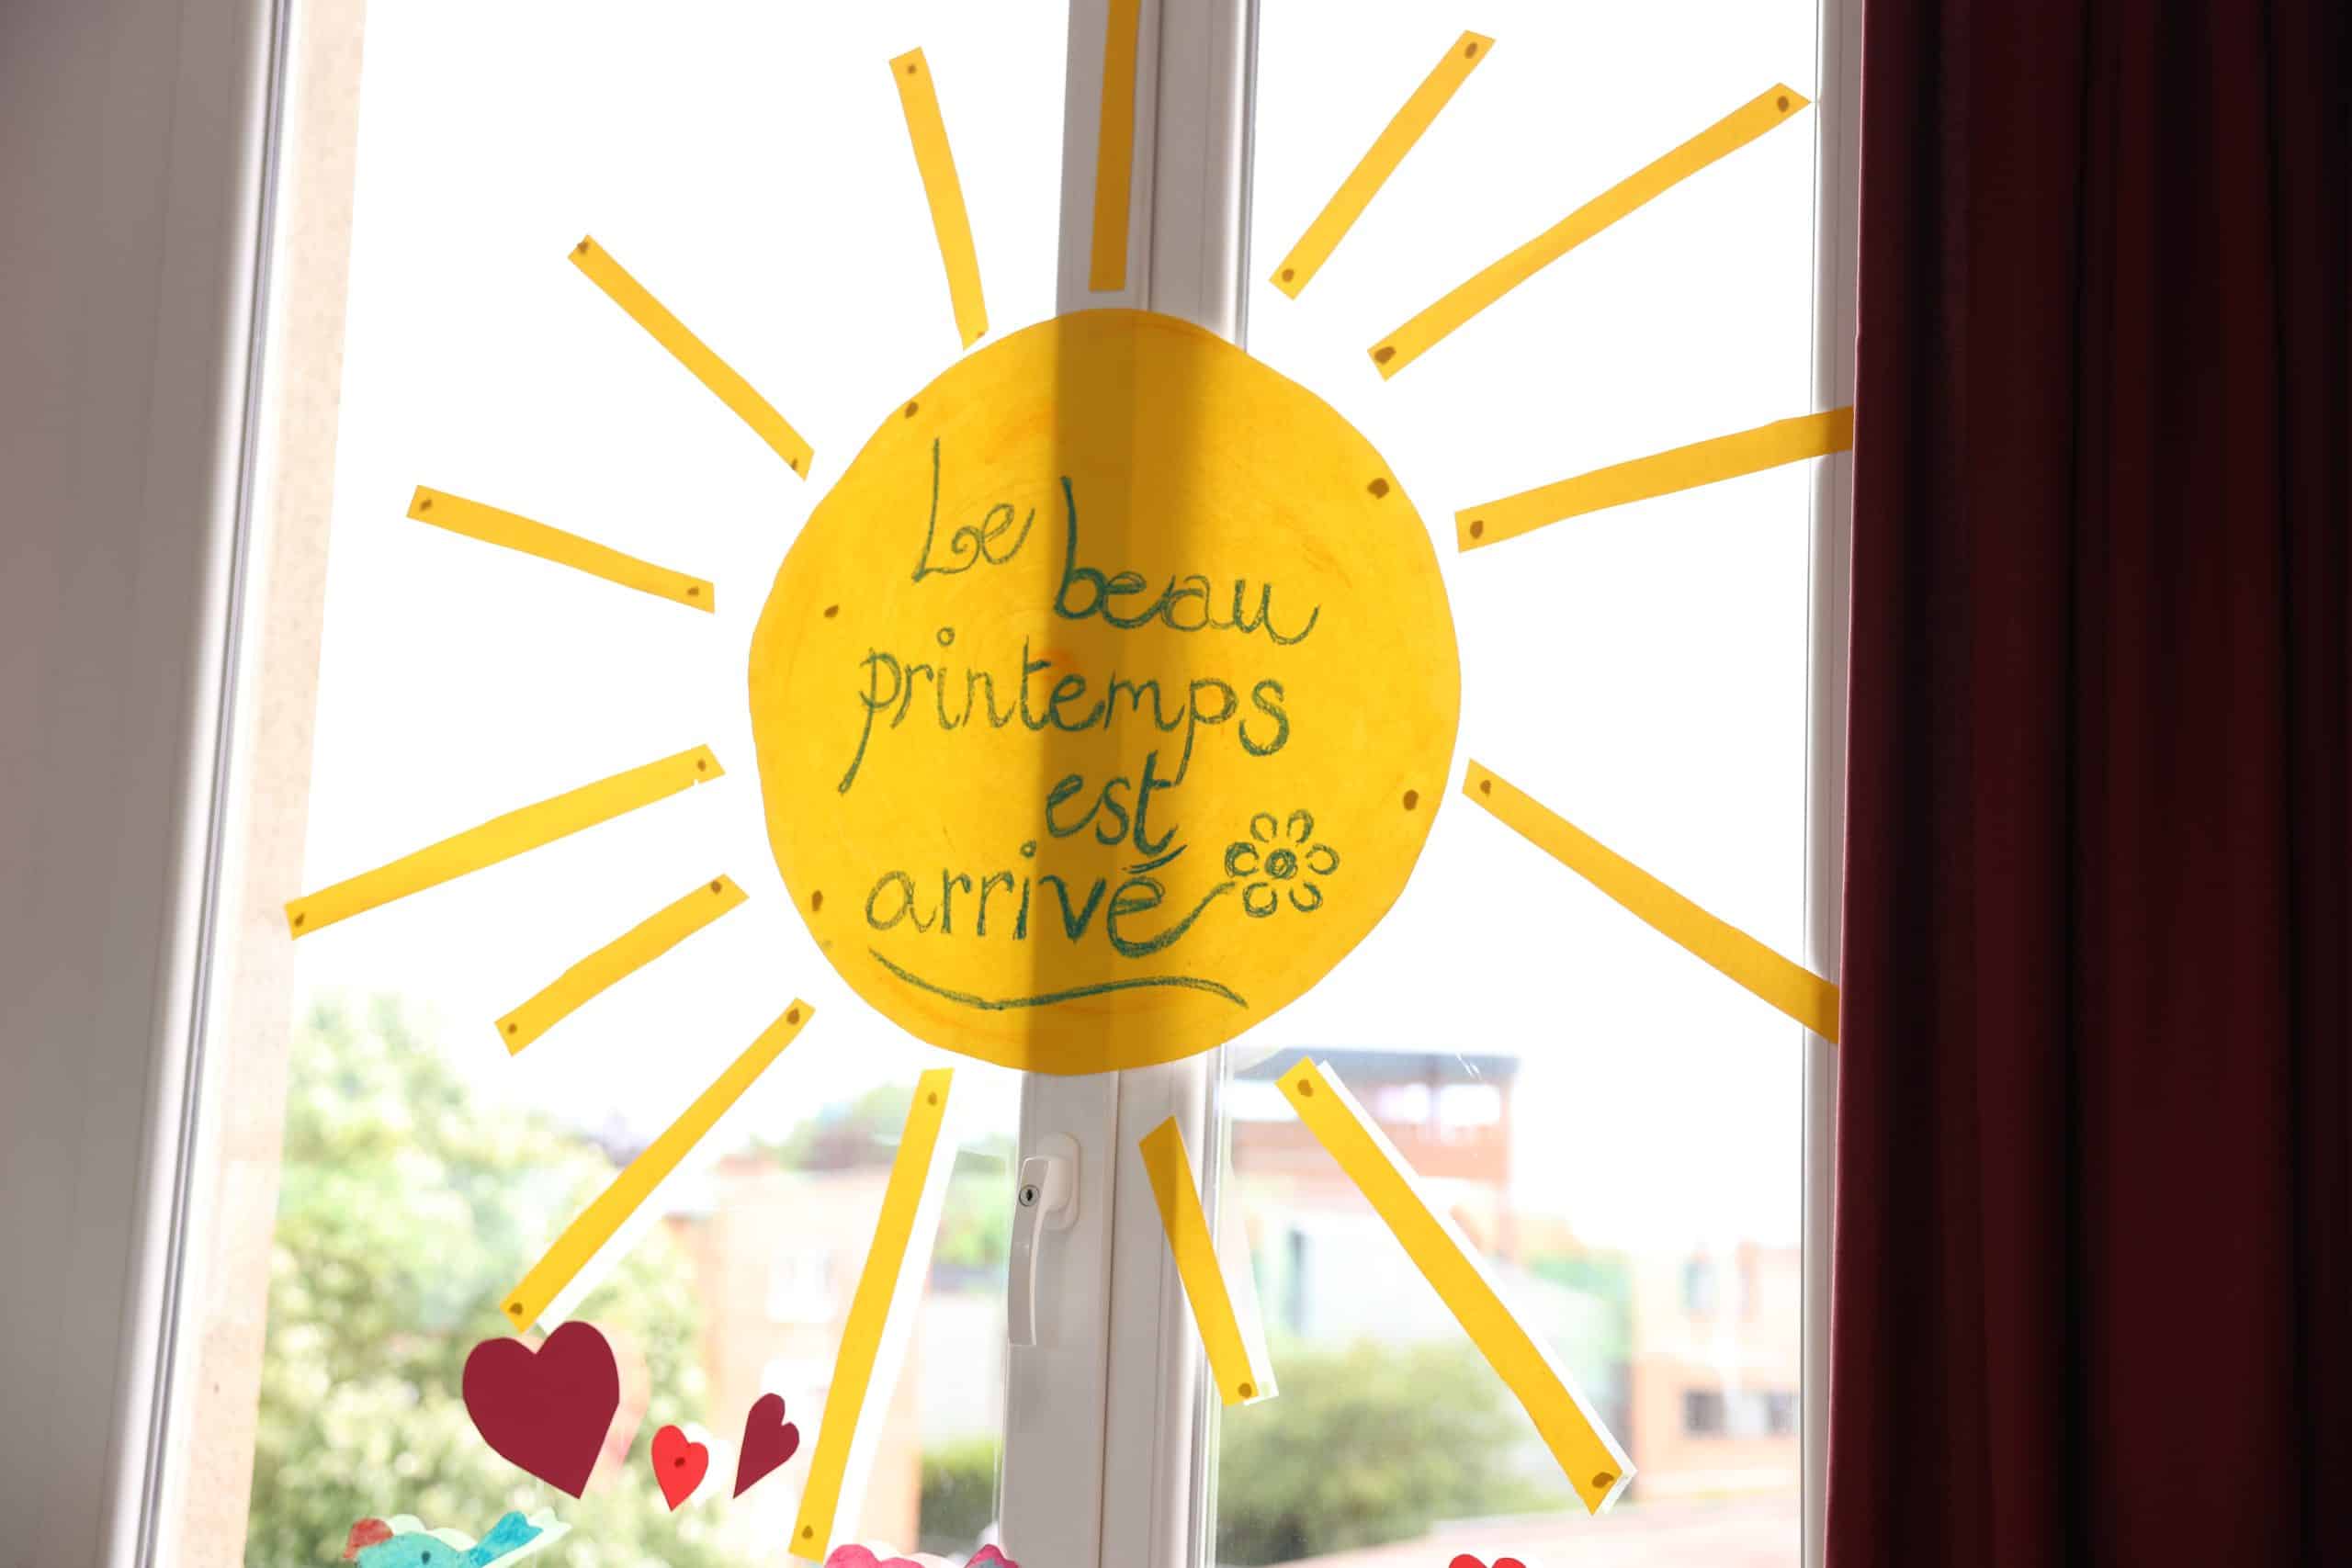 Le beau
printemps
est
arrivé